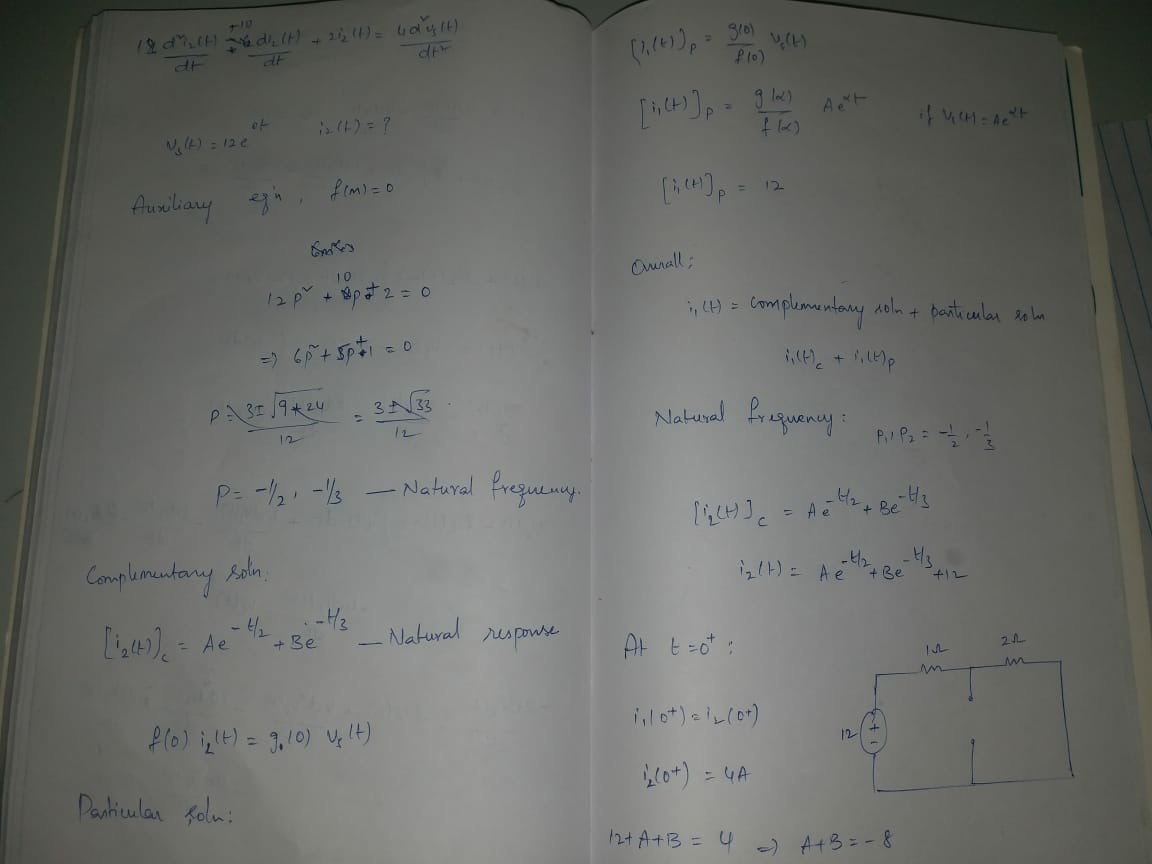 12 d²i₂(t)/dt + 10 di₂(t)/dt + 2i₂(t) = 4d²v₁(t)/dt²
v₅(t) = 12e^0t i₂(t) = ?
Auxiliary eq'n, f(m) = 0
12p² + 10p + 2 = 0
=) 6p² + 5p + 1 = 0
P = 3 ± √9+24 / 12 = 3 ± √33 / 12
P = -1/2, -1/3 — Natural frequency.
Complementary soln:
[i₂(t)]c = Ae^-t/2 + Be^-t/3 — Natural response
f(0) i₂(t) = g.(0) v₅(t)
Particular soln:
[i₁(t)]p = g(0)/f(0) v₅(t)
[i₁(t)]p = g(α)/f(α) Ae^αt if v₁(t) = Ae^αt
[i₁(t)]p = 12
Overall;
i₁(t) = complementary soln + particular soln
i₁(t)c + i₁(t)p
Natural frequency: P₁, P₂ = -1/2, -1/3
[i₂(t)]c = Ae^-t/2 + Be^-t/3
i₂(t) = Ae^-t/2 + Be^-t/3 + 12
At t = 0⁺ :
1Ω 2Ω
i₁(0⁺) = i₂(0⁺)
12 + -
i₂(0⁺) = 4A
12 + A + B = 4 =) A + B = -8